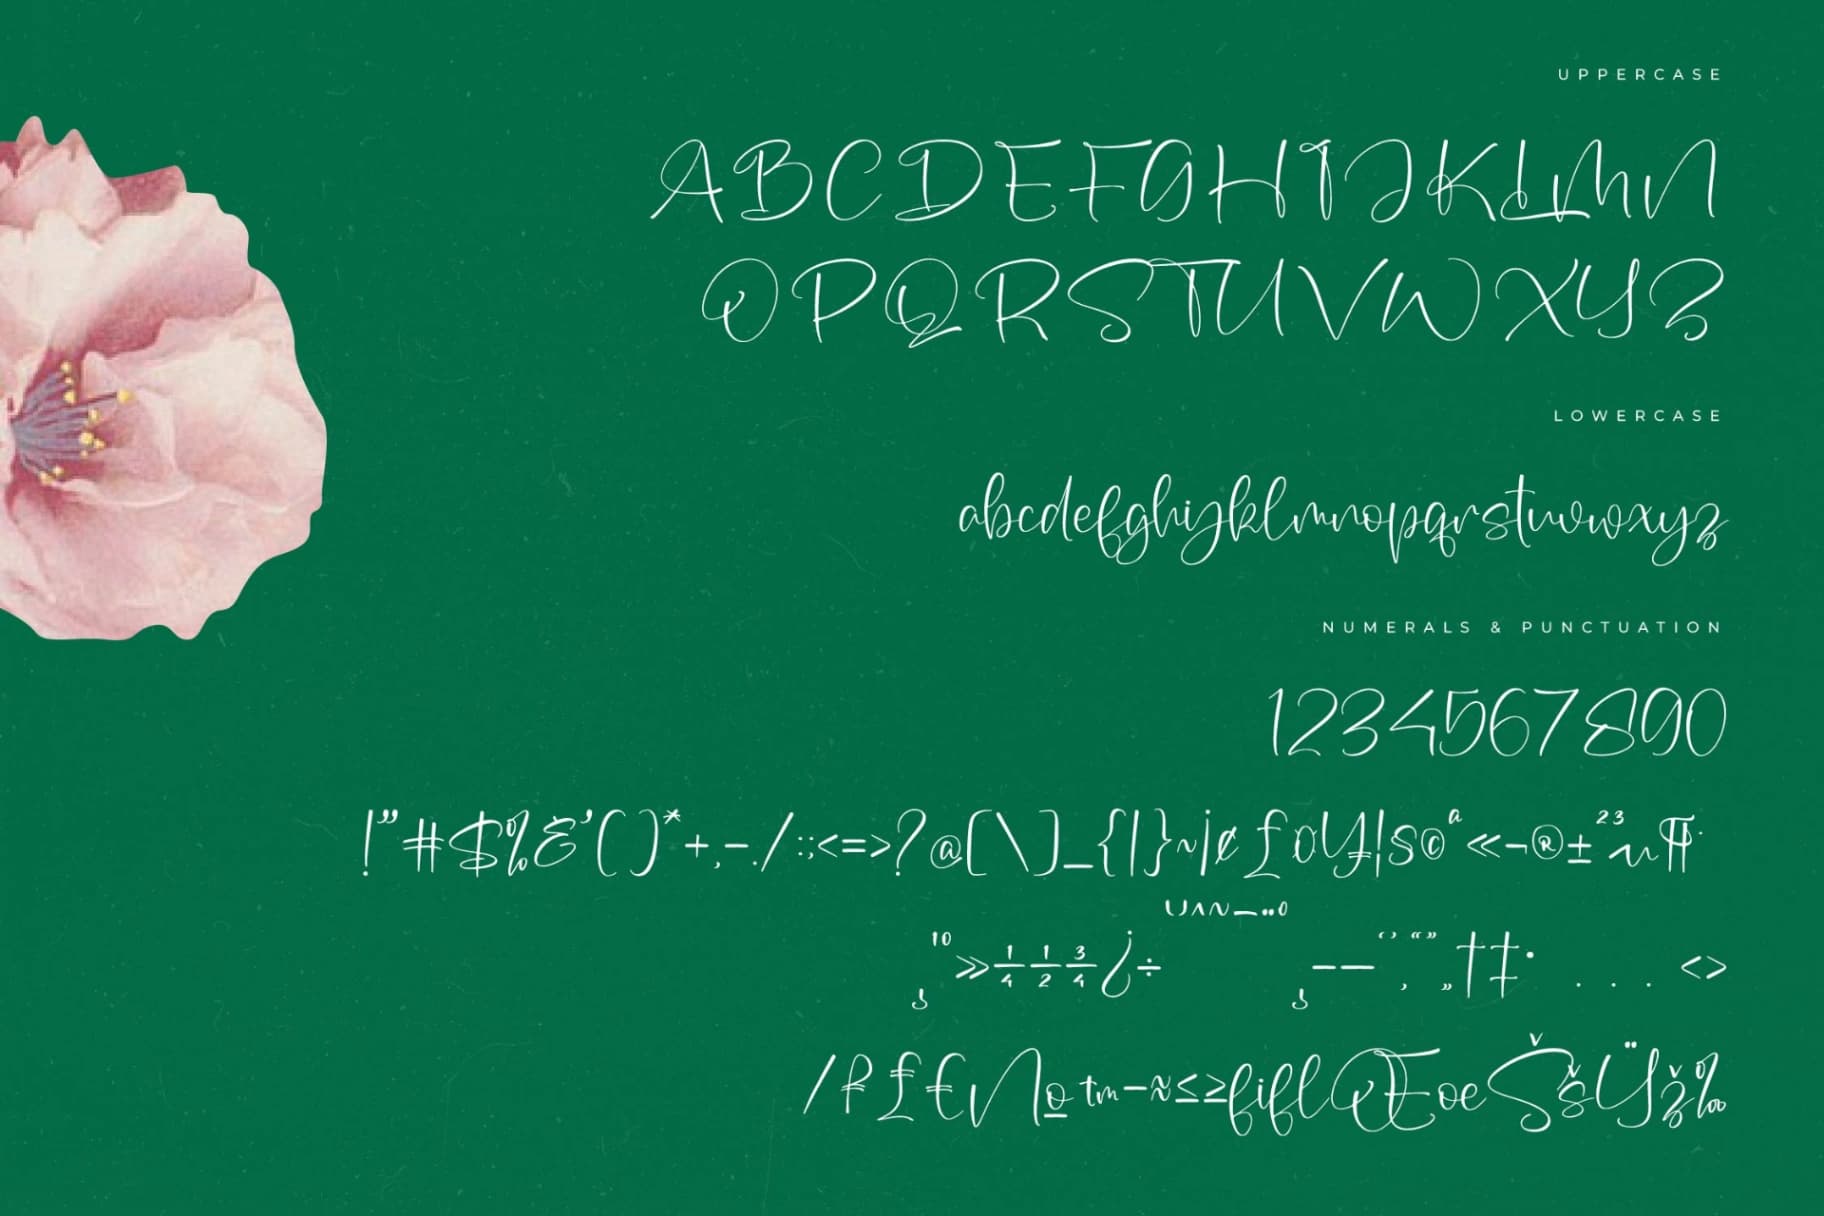 UPPERCASE
ABCDEFGHIJKLMN
OPQRSTUVWXYZ
LOWERCASE
abcdefghijklmnopqrstuvwxyz
NUMERALS & PUNCTUATION
1234567890
!"#$%&'()*+,-./:;<=>?@[\]_{|}~¡¢£¤¥¦§©ª«¬®±²³µ¶·
¸¹º»¼½¾¿÷ ˘ˆ˜¯¨˚ ¸–—‘’‚“”„†‡• . . . ‹›
⁄₣₤€№™−≈≤≥fiflŒœŠšŸž‰